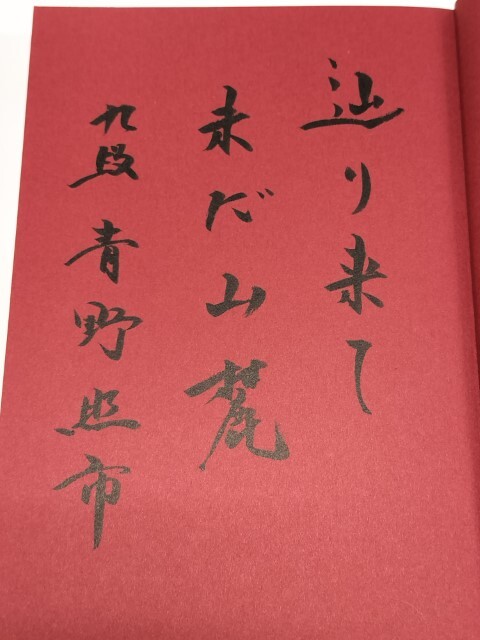 辿り来て
未だ山麓
九段 青野照市